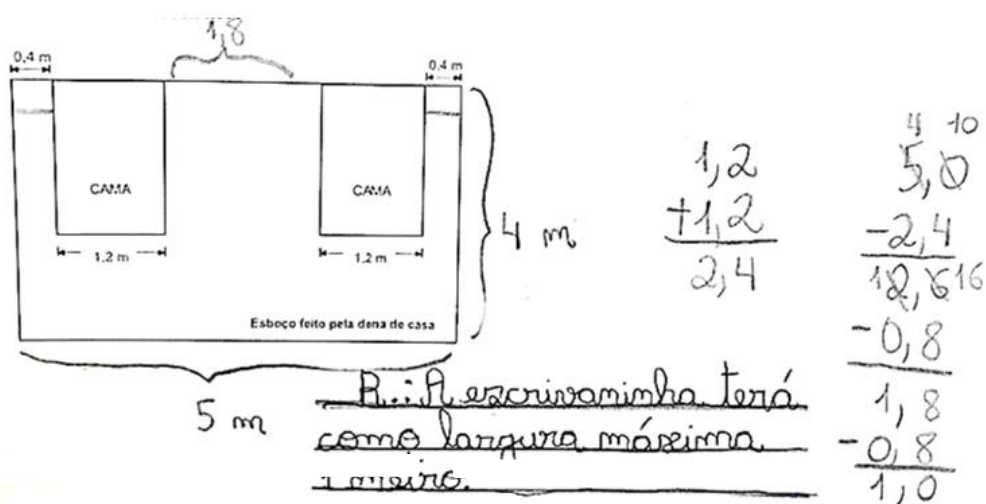 1,8
0,4 m
0,4 m
CAMA
CAMA
1,2 m
1,2 m
4 m
Esboço feito pela dona de casa
5 m
1,2
+1,2
2,4
4 10
5,0
-2,4
12,6 16
-0,8
1,8
-0,8
1,0
R.: A escrivaninha terá
como largura máxima
1 metro.